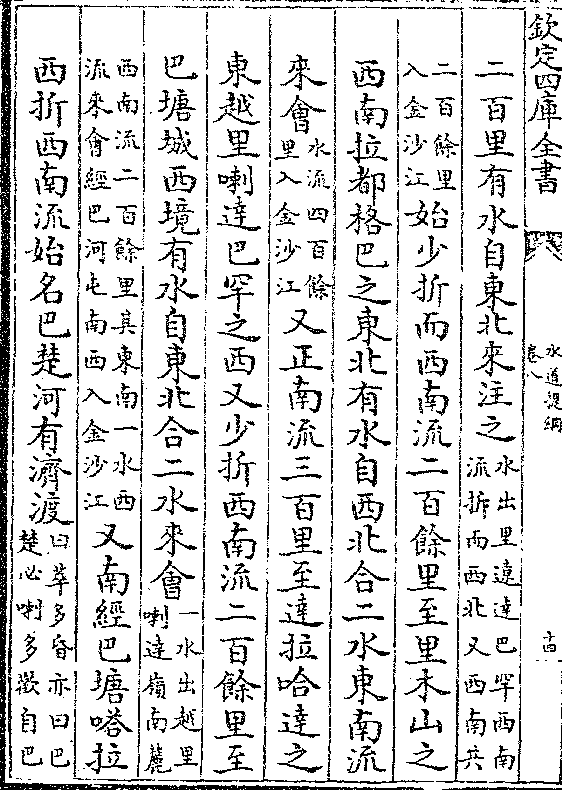 欽定四庫全書
水道提綱
卷八
十四
二百里有水自東北來注之水出里達達巴罕西南流折而西北又西南共
二百餘里入金沙江始少折而西南流二百餘里至里木山之
西南拉都格巴之東北有水自西北合二水東南流
來會水流四百餘里入金沙江又正南流三百里至達拉哈達之
東越里喇達巴罕之西又少折西南流二百餘里至
巴塘城西境有水自東北合二水來會一水出越里喇達嶺南麓
西南流二百餘里其東南一水西流來會經巴河屯南西入金沙江又南經巴塘嗒拉
西折西南流始名巴楚河有濟渡曰萃多昏亦曰巴楚必喇多歡自巴